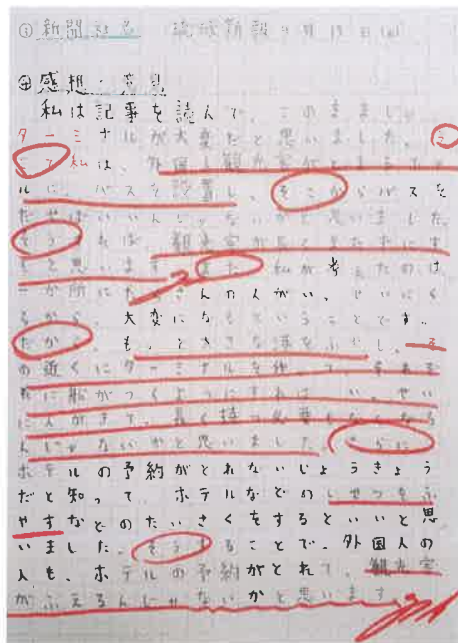 ③ 新聞社名 琉球新報 9月13日(水)
④感想・意見
私は記事を読んで、このままじゃ
ターミナルが大変だと思いました。そ
こで私は、外国人観光客がとまるホテ
ルに、バスを設置し、そこからバスを
だせばいいんじゃないかと思いました。
そうすれば、観光客が長くまたずにす
むと思います。また、私が考えたのは
一か所にたくさんの人がいっせいにく
るから、大変になるということです。
だから、もっと大きな港をふやし、そ
の近くにターミナルを作って、それぞ
れに船がつくようにすれば、いっせい
に人がきて、長く待つ必要もなくなる
んじゃないかと思いました。さらに、
ホテルの予約がとれないじょうきょう
だと知って、ホテルなどのしせつをふ
やすなどのたいさくをするといいと思
いました。そうすることで、外国人の
人も、ホテルの予約がとれて、観光客
がふえるんじゃないかと思います。